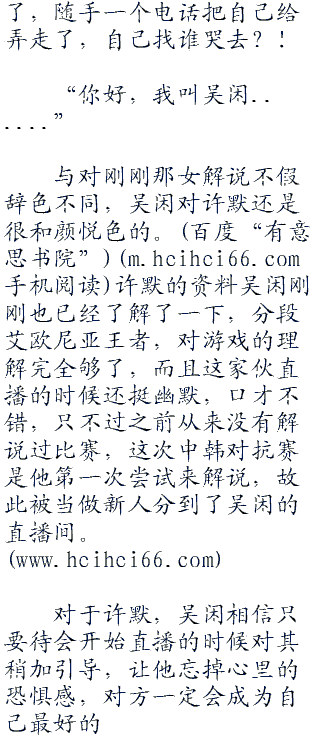 了，随手一个电话把自己给
弄走了，自己找谁哭去？！
“你好，我叫吴闲..
....”
与对刚刚那女解说不假
辞色不同，吴闲对许默还是
很和颜悦色的。(百度“有意
思书院”)(m.hcihci66.com
手机阅读)许默的资料吴闲刚
刚也已经了解了一下，分段
艾欧尼亚王者，对游戏的理
解完全够了，而且这家伙直
播的时候还挺幽默，口才不
错，只不过之前从来没有解
说过比赛，这次中韩对抗赛
是他第一次尝试来解说，故
此被当做新人分到了吴闲的
直播间。
(www.hcihci66.com)
对于许默，吴闲相信只
要待会开始直播的时候对其
稍加引导，让他忘掉心里的
恐惧感，对方一定会成为自
己最好的